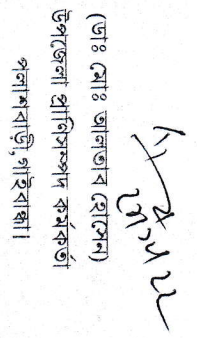 (ডাঃ মোঃ আলতাব হোসেন)
উপজেলা প্রাণিসম্পদ কর্মকর্তা
পলাশবাড়ী, গাইবান্ধা।